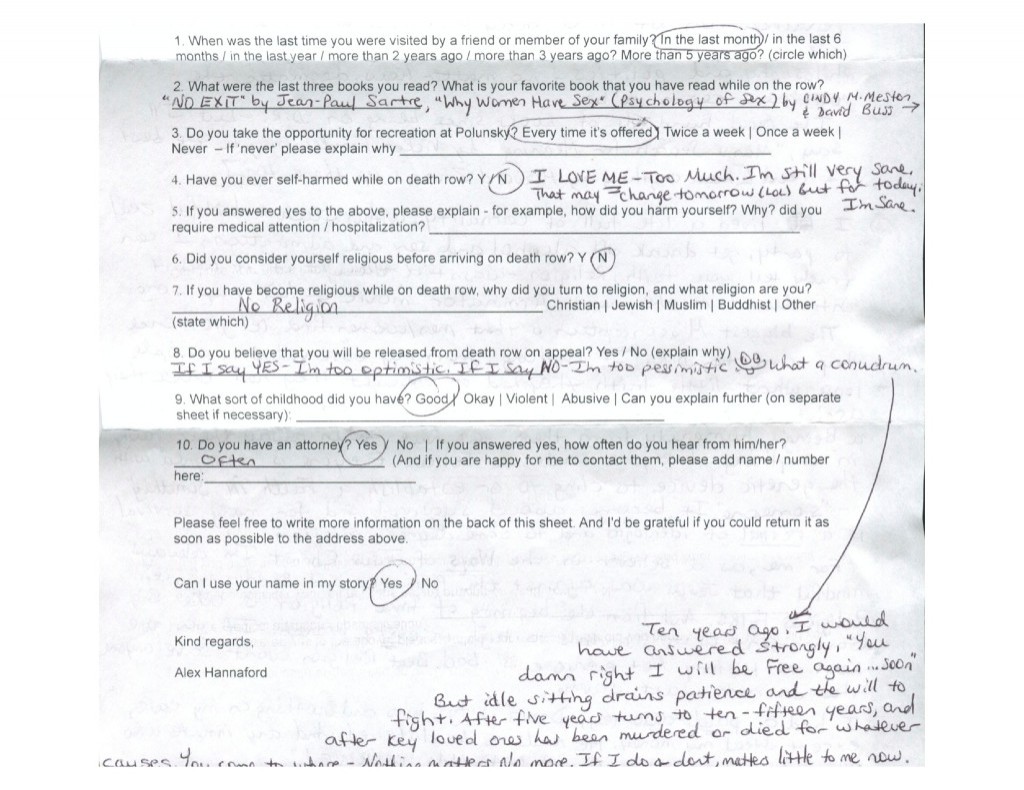 1. When was the last time you were visited by a friend or member of your family? In the last month / in the last 6
months / in the last year / more than 2 years ago / more than 3 years ago? More than 5 years ago? (circle which)
2. What were the last three books you read? What is your favorite book that you have read while on the row?
"NO EXIT" by Jean-Paul Sartre, "Why Women Have Sex" (Psychology of Sex) by CINDY M. Meston
& David Buss →
3. Do you take the opportunity for recreation at Polunsky? Every time it's offered | Twice a week | Once a week |
Never – If 'never' please explain why
4. Have you ever self-harmed while on death row? Y / N I LOVE ME - Too Much. Im still very sane.
That may change tomorrow (LOL) but for today,
I'm Sane.
5. If you answered yes to the above, please explain - for example, how did you harm yourself? Why? did you
require medical attention / hospitalization?
6. Did you consider yourself religious before arriving on death row? Y / N
7. If you have become religious while on death row, why did you turn to religion, and what religion are you?
No Religion Christian | Jewish | Muslim | Buddhist | Other
(state which)
8. Do you believe that you will be released from death row on appeal? Yes / No (explain why)
If I say YES - Im too optimistic. If I say NO - Im too pessimistic. What a conudrum.
9. What sort of childhood did you have? Good / Okay | Violent | Abusive | Can you explain further (on separate
sheet if necessary):
10. Do you have an attorney? Yes / No | If you answered yes, how often do you hear from him/her?
Often (And if you are happy for me to contact them, please add name / number
here:
Please feel free to write more information on the back of this sheet. And I'd be grateful if you could return it as
soon as possible to the address above.
Can I use your name in my story? Yes / No
Kind regards,
Alex Hannaford
Ten years ago, I would
have answered strongly, "You
damn right I will be free again ... soon"
But idle sitting drains patience and the will to
fight. After five years turns to ten - fifteen years, and
after key loved ones has been murdered or died for whatever
causes. You come to where - Nothing matters No more. If I do or dont, matters little to me now.